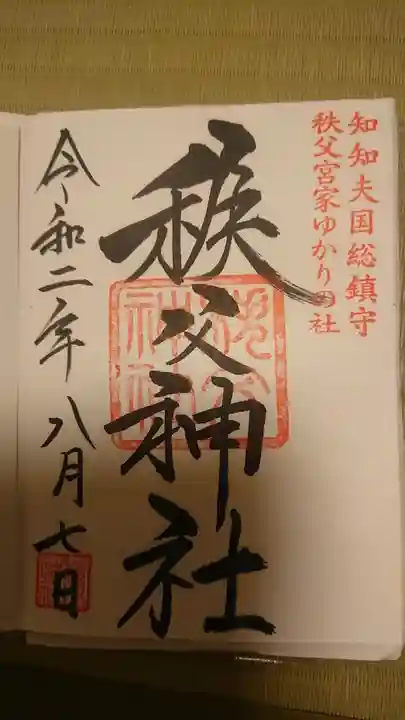 知知夫国総鎮守
秩父宮家ゆかりの社
秩父神社
令和二年八月七日